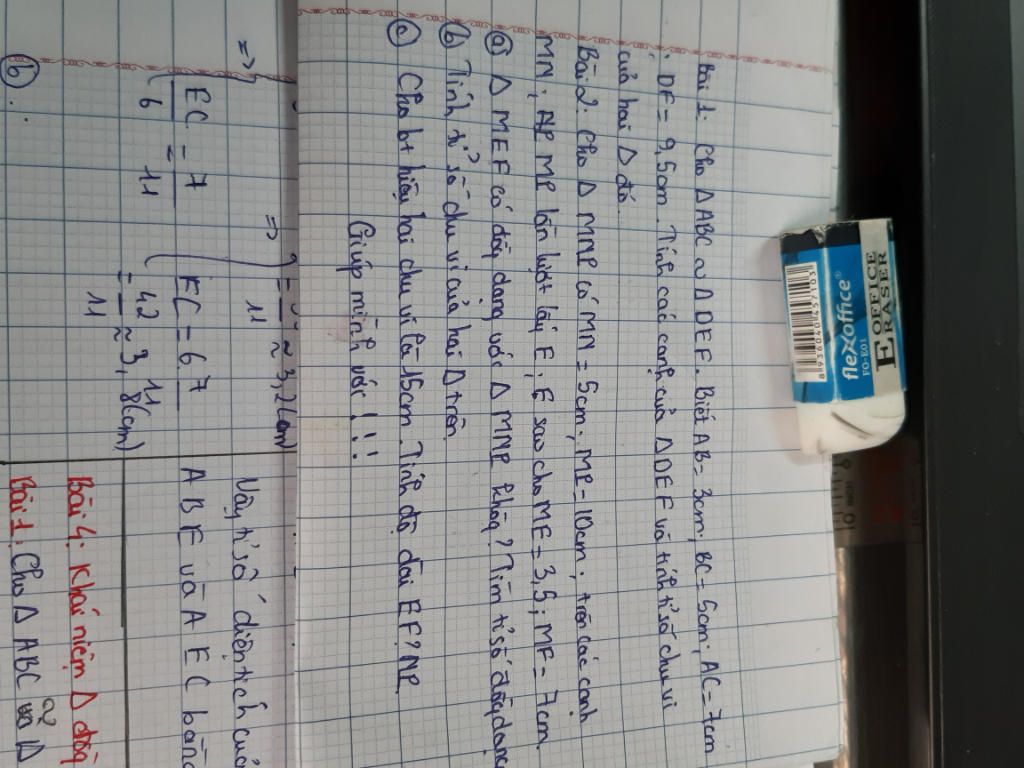 Bài 1: Cho Δ ABC ~ Δ DEF. Biết AB = 3cm; BC = 5cm; AC = 7cm
; DF = 9,5cm. Tính các cạnh của Δ DEF và tính tỉ số chu vi
của hai Δ đó.
Bài 2: Cho Δ MNP có MN = 5cm; MP = 10cm; trên các cạnh
MN; MP lần lượt lấy E; F sao cho ME = 3,5; MF = 7cm.
a) Δ MEF có đồng dạng với Δ MNP khôg? Tìm tỉ số đồg dạng
b) Tính tỉ số chu vi của hai Δ trên
c) Cho bt hiệu hai chu vi là 15cm. Tính độ dài EF? NP
Giúp mình với!!!
flexoffice®
FO-E01
OFFICE
ERASER
8936040457103
=>
=>
11
≈ 3,2(cm)
EC = 7
6 11
EC = 6.7
11
= 42 ≈ 3,8(cm)
11
b)
Vậy tỉ số diện tích của
ABE và AEC bằng
Bài 4: Khái niệm Δ đồng
Bài 1: Cho Δ ABC ~ Δ